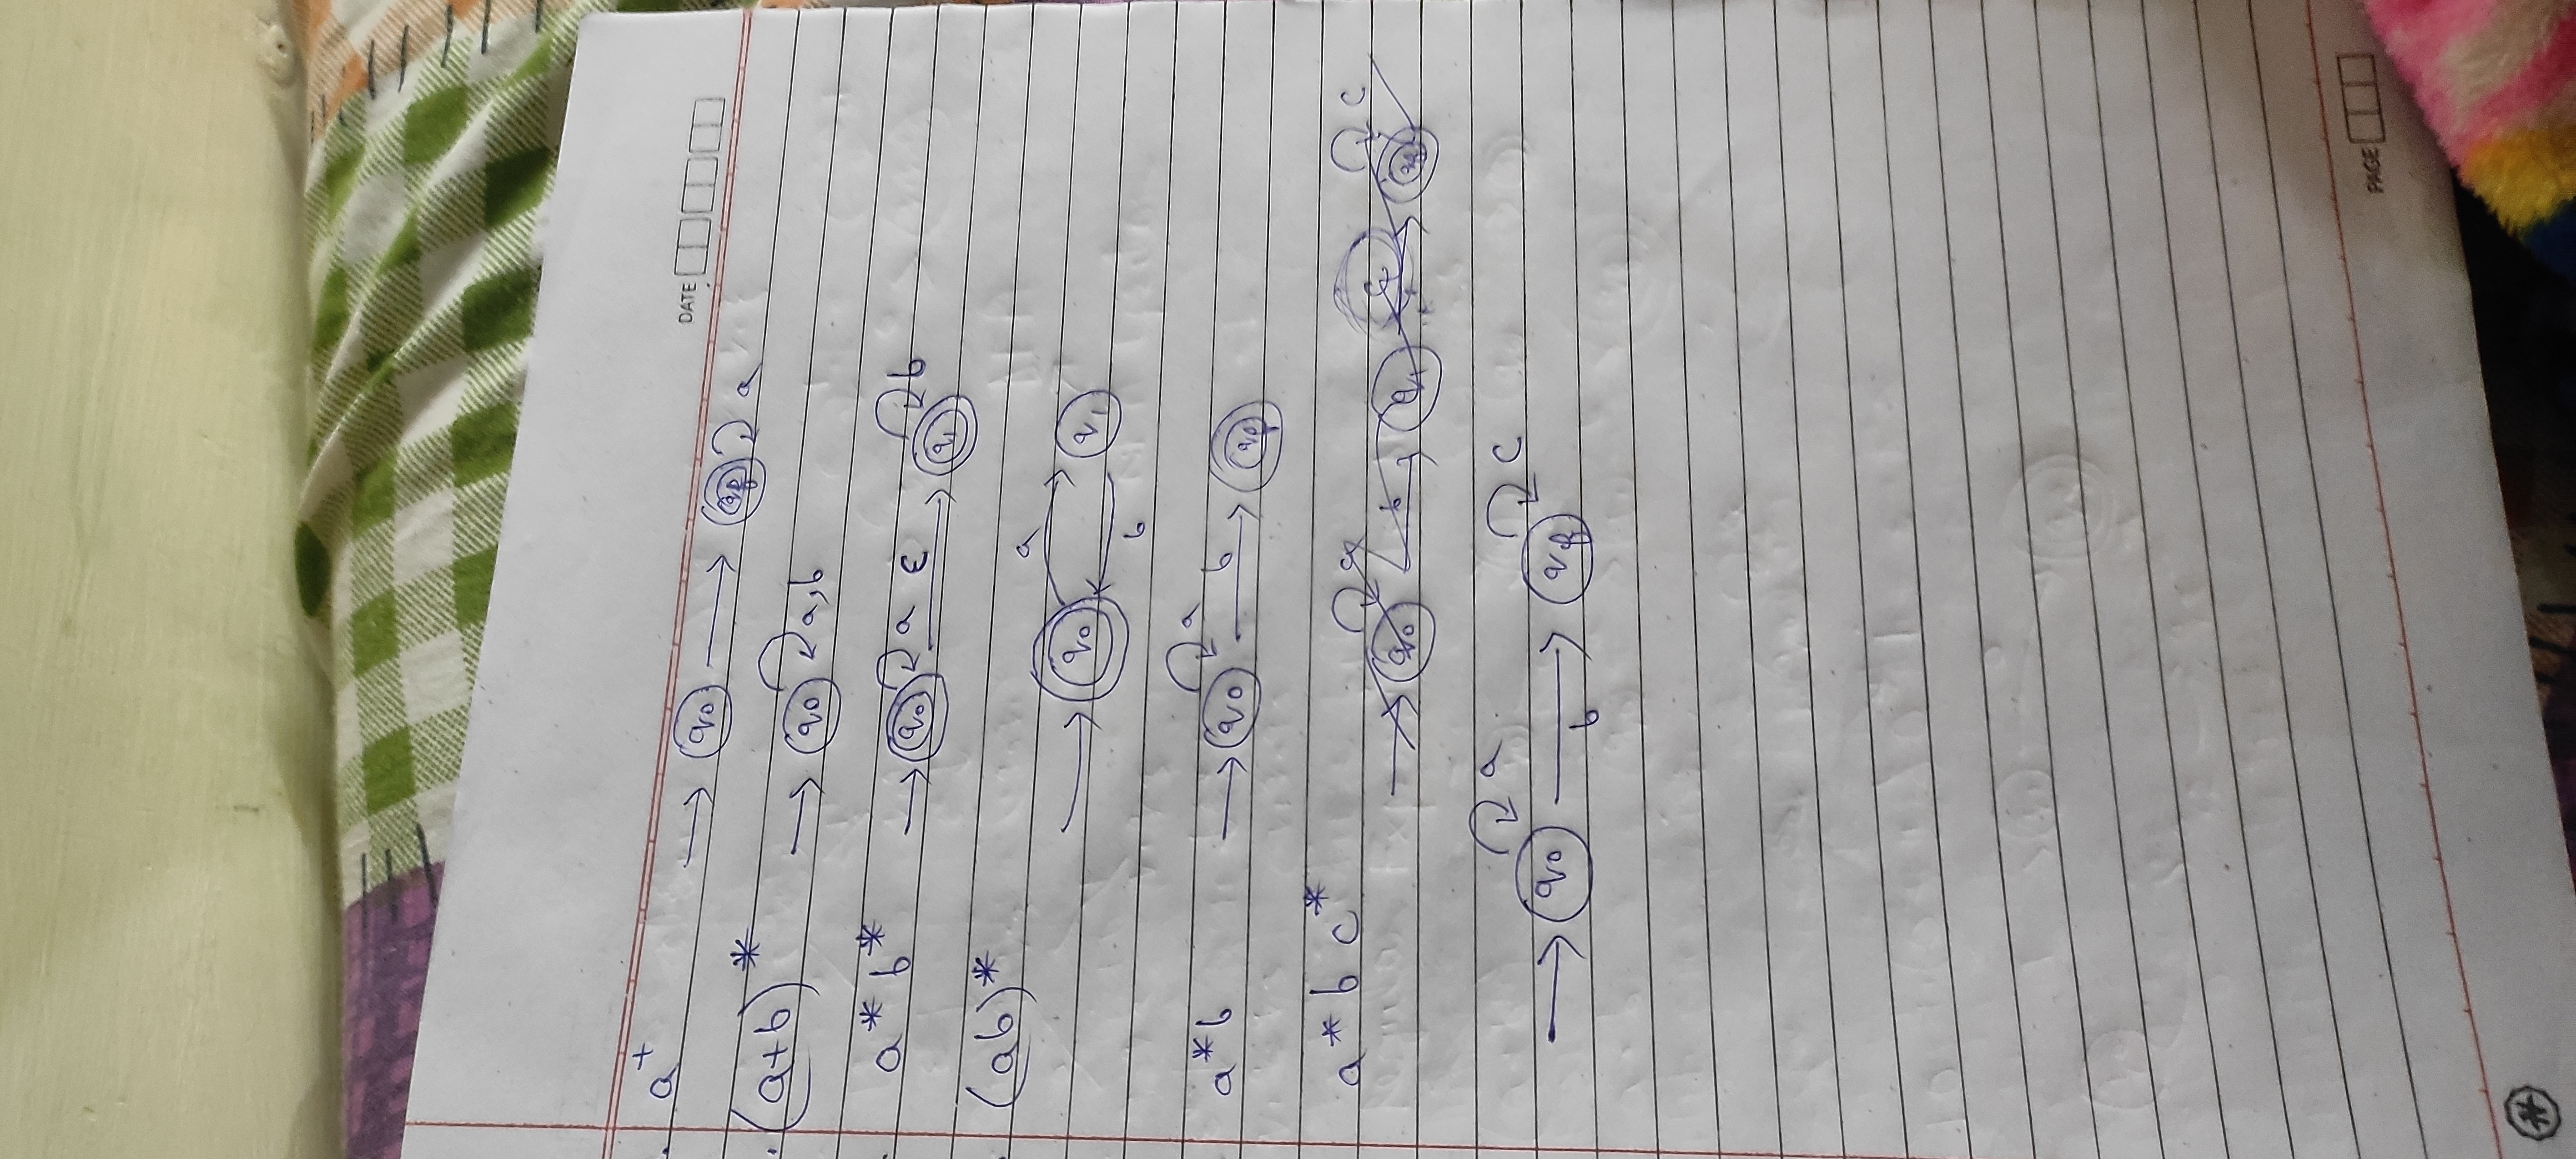 DATE
. a⁺ → q₀ → qf a
. (a+b)* → q₀ a,b
a* b* → q₀ a ε → q₁ b
(ab)*
→ q₀ a → q₁
b
a*b → q₀ a b → qf
a* b c*
q₀ b q₁ c
→ q₀ a b → qf c
PAGE